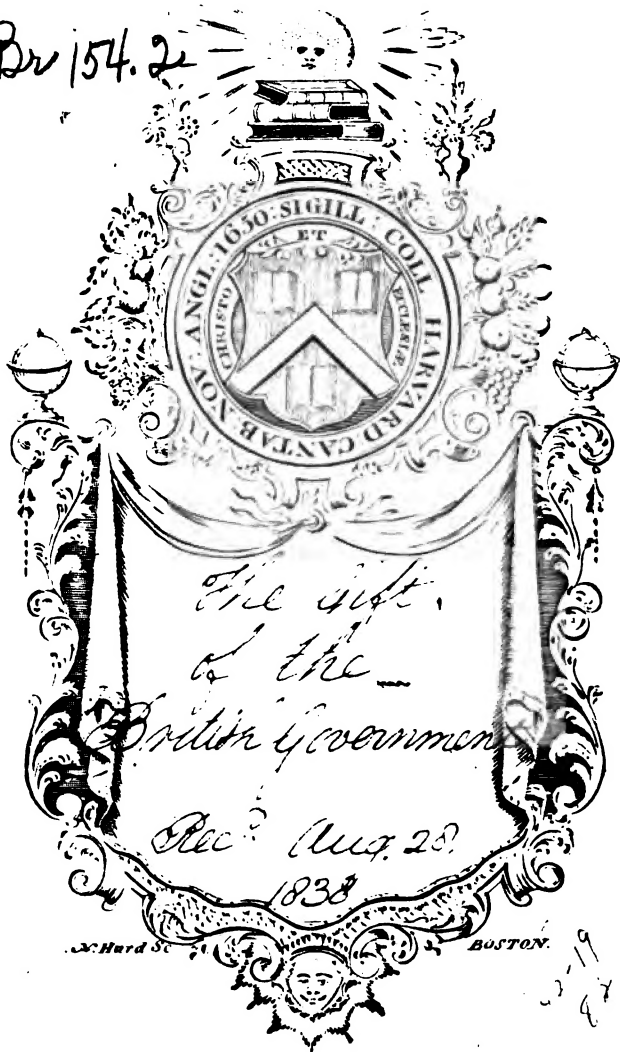 Br 154.2
SIGILL : COLL HARVARD CANTAB. NOV : ANGL : 1650 :
ET
CHRISTO
ECCLESIÆ
The Gift.
of the
British Government
Rec.d Aug. 28.
1838
N. Hurd Sc
BOSTON.